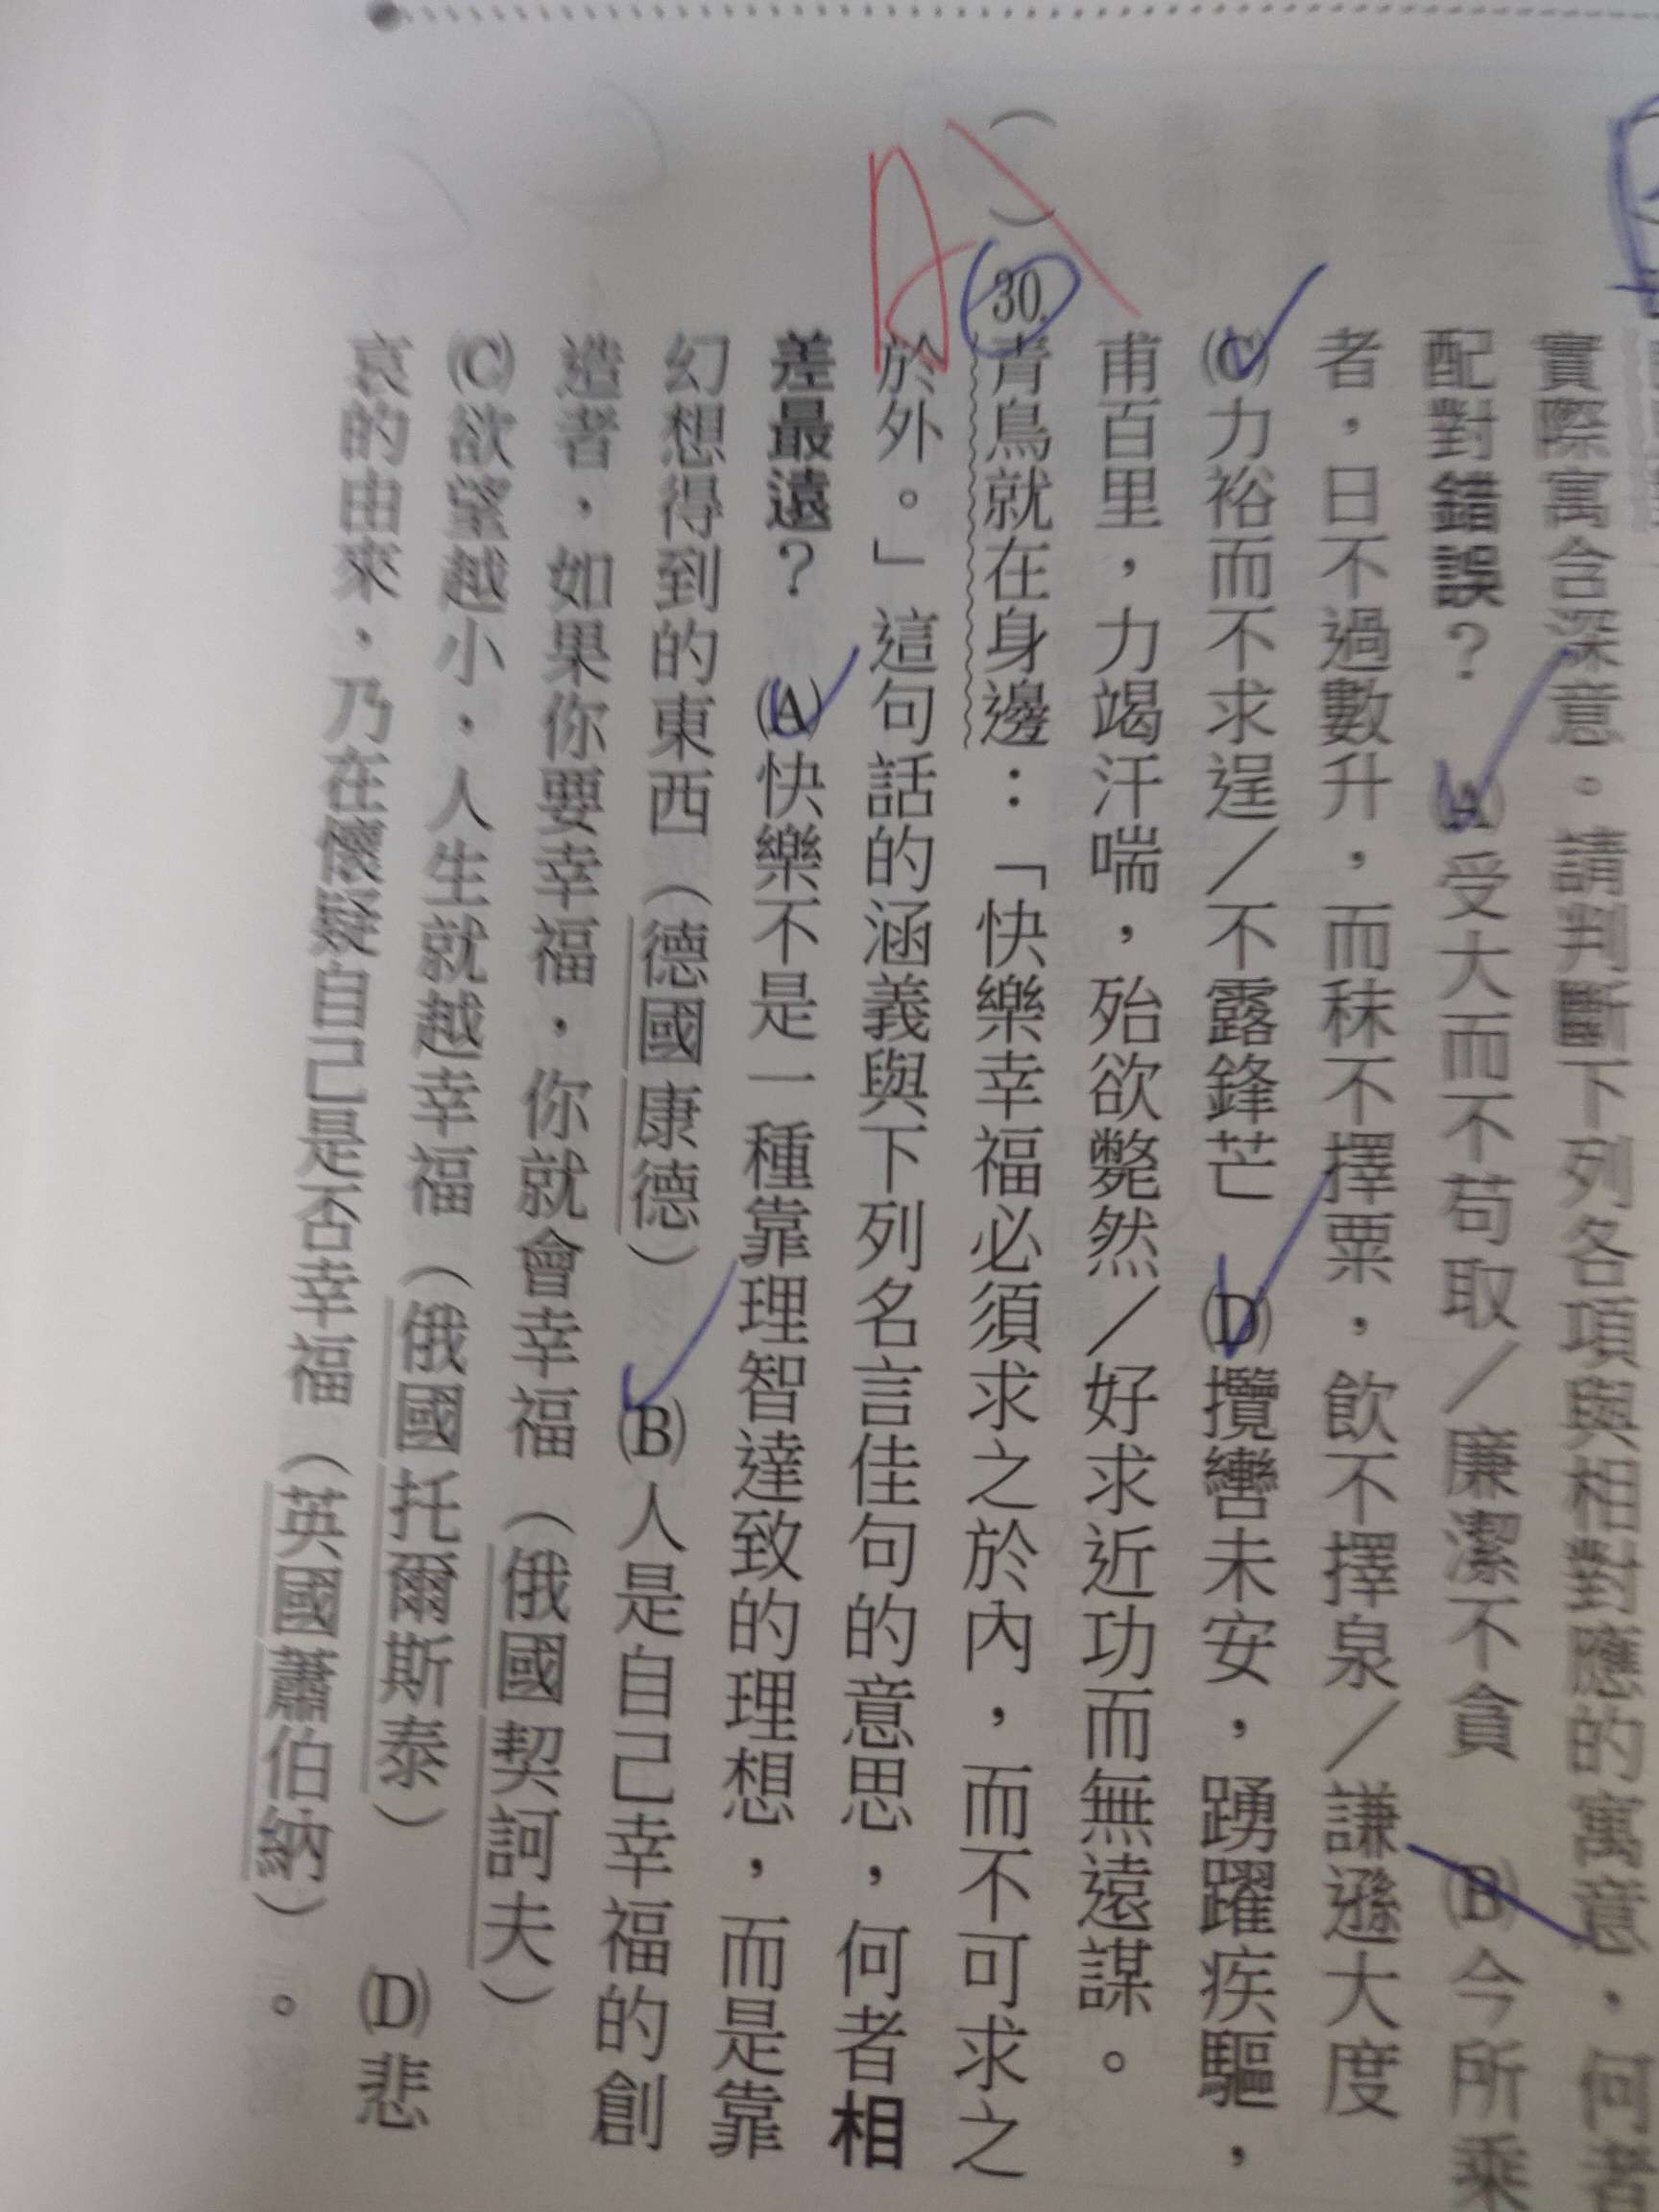 實際寓含深意。請判斷下列各項與相對應的寓意,何者
配對錯誤? (A)受大而不苟取/廉潔不貪 (B)今所乘
者,日不過數升,而秣不擇粟,飲不擇泉/謙遜大度
(C)力裕而不求逞/不露鋒芒 (D)攬轡未安,踴躍疾驅,
甫百里,力竭汗喘,殆欲斃然/好求近功而無遠謀。
( )30.青鳥就在身邊:「快樂幸福必須求之於內,而不可求之
於外。」這句話的涵義與下列名言佳句的意思,何者相
差最遠? (A)快樂不是一種靠理智達致的理想,而是靠
幻想得到的東西(德國康德) (B)人是自己幸福的創
造者,如果你要幸福,你就會幸福(俄國契訶夫)
(C)欲望越小,人生就越幸福(俄國托爾斯泰) (D)悲
哀的由來,乃在懷疑自己是否幸福(英國蕭伯納)。
A